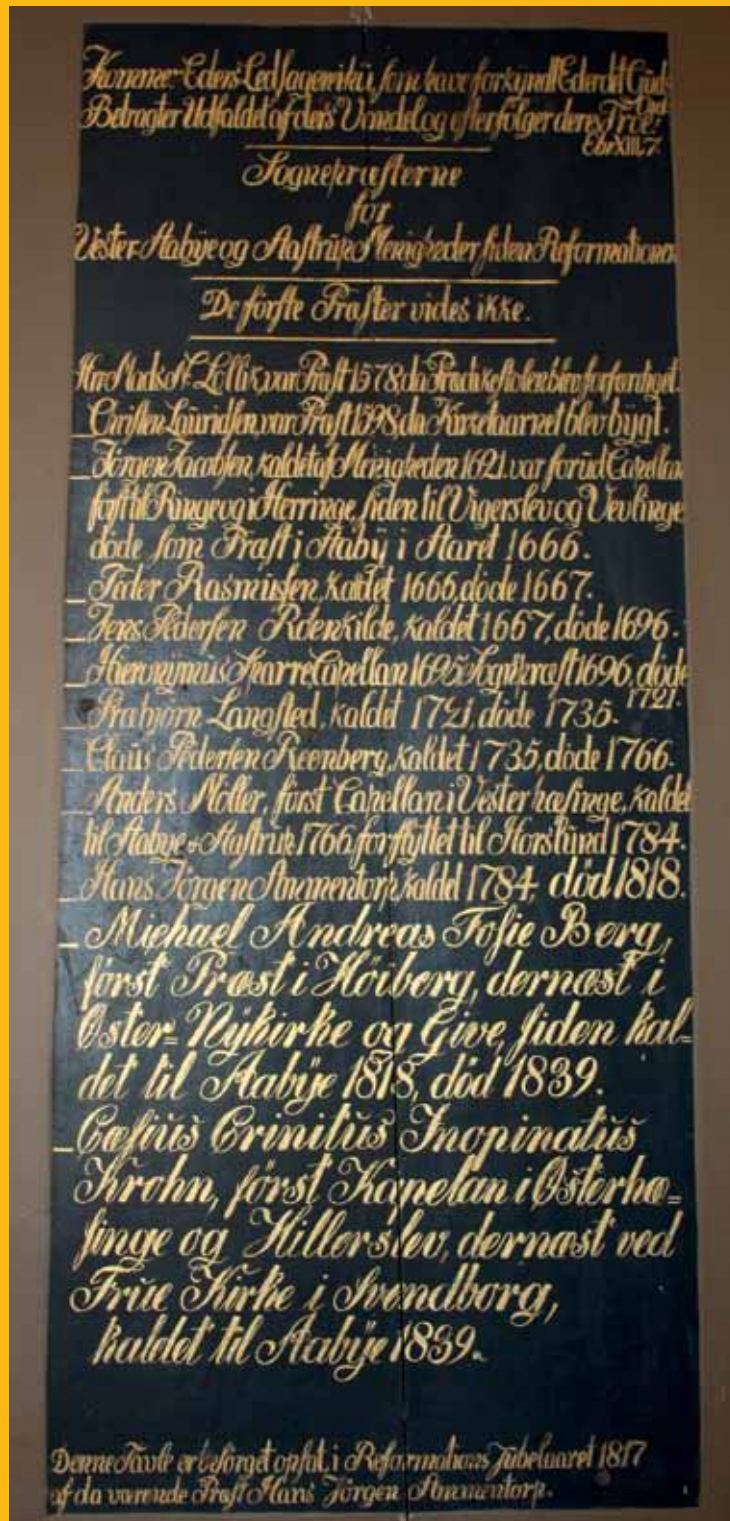 Kommer Eders Ledsagere ihu, som have forkyndt Eder det Guds
Ord.
Betragter Udfaldet af deres Vandel og efterfølger deres Troe.
Ebr XIII.7.
Sognepræsterne
for
Vester-Aabÿe og Aastrüp Menigheder siden Reformationen
De förste Præster vides ikke.
Hr Mads Lollik var Præst 1578, da Prædikestolen blev forfærdiget.
_ Christen Lauridsen var Præst 1598, da Kirketaarnet blev bÿgt.
_ Jörgen Jacobsen, kaldet af Menigheden 1621. var forüd Capellan
först til Ringe og i Herringe, siden til Vigerslev og Vevlinge
döde som Præst i Aabÿ i Aaret 1666.
_ Peder Rasmüssen, kaldet 1666, döde 1667.
_ Jens Pedersen Röenkilde, kaldet 1667, döde 1696.
_ Hieronÿmüs Sparre Capellan 1695 Sognepræst 1696, döde
1721.
_ Langsted, kaldet 1721, döde 1735.
_ Claüs Pedersen Reenberg, kaldet 1735, döde 1766.
_ Anders Möller, först Capellan i Vesterhæsinge, kaldet
til Aabye & Aastrüp 1766, forflÿttet til Horslünd 1784.
_ Hans Jörgen Ammentorp, kaldet 1784, död 1818.
_ Michael Andreas Fosie Berg,
først Præst i Höiberg, dernæst i
Øster=Nÿkirke og Give, siden kal=
det til Aabÿe 1818, död 1839.
_ Cæsiüs Crinitüs Inopinatüs
Krohn, först Kapelan i Østerhæ=
singe og Hillerslev, dernæst ved
Früe Kirke i Svendborg,
kaldet til Aabÿe 1839.
Denne Tavle er besörget opsat, i Reformations Jübelaaret 1817
af da værende Præst Hans Jörgen Ammentorp.